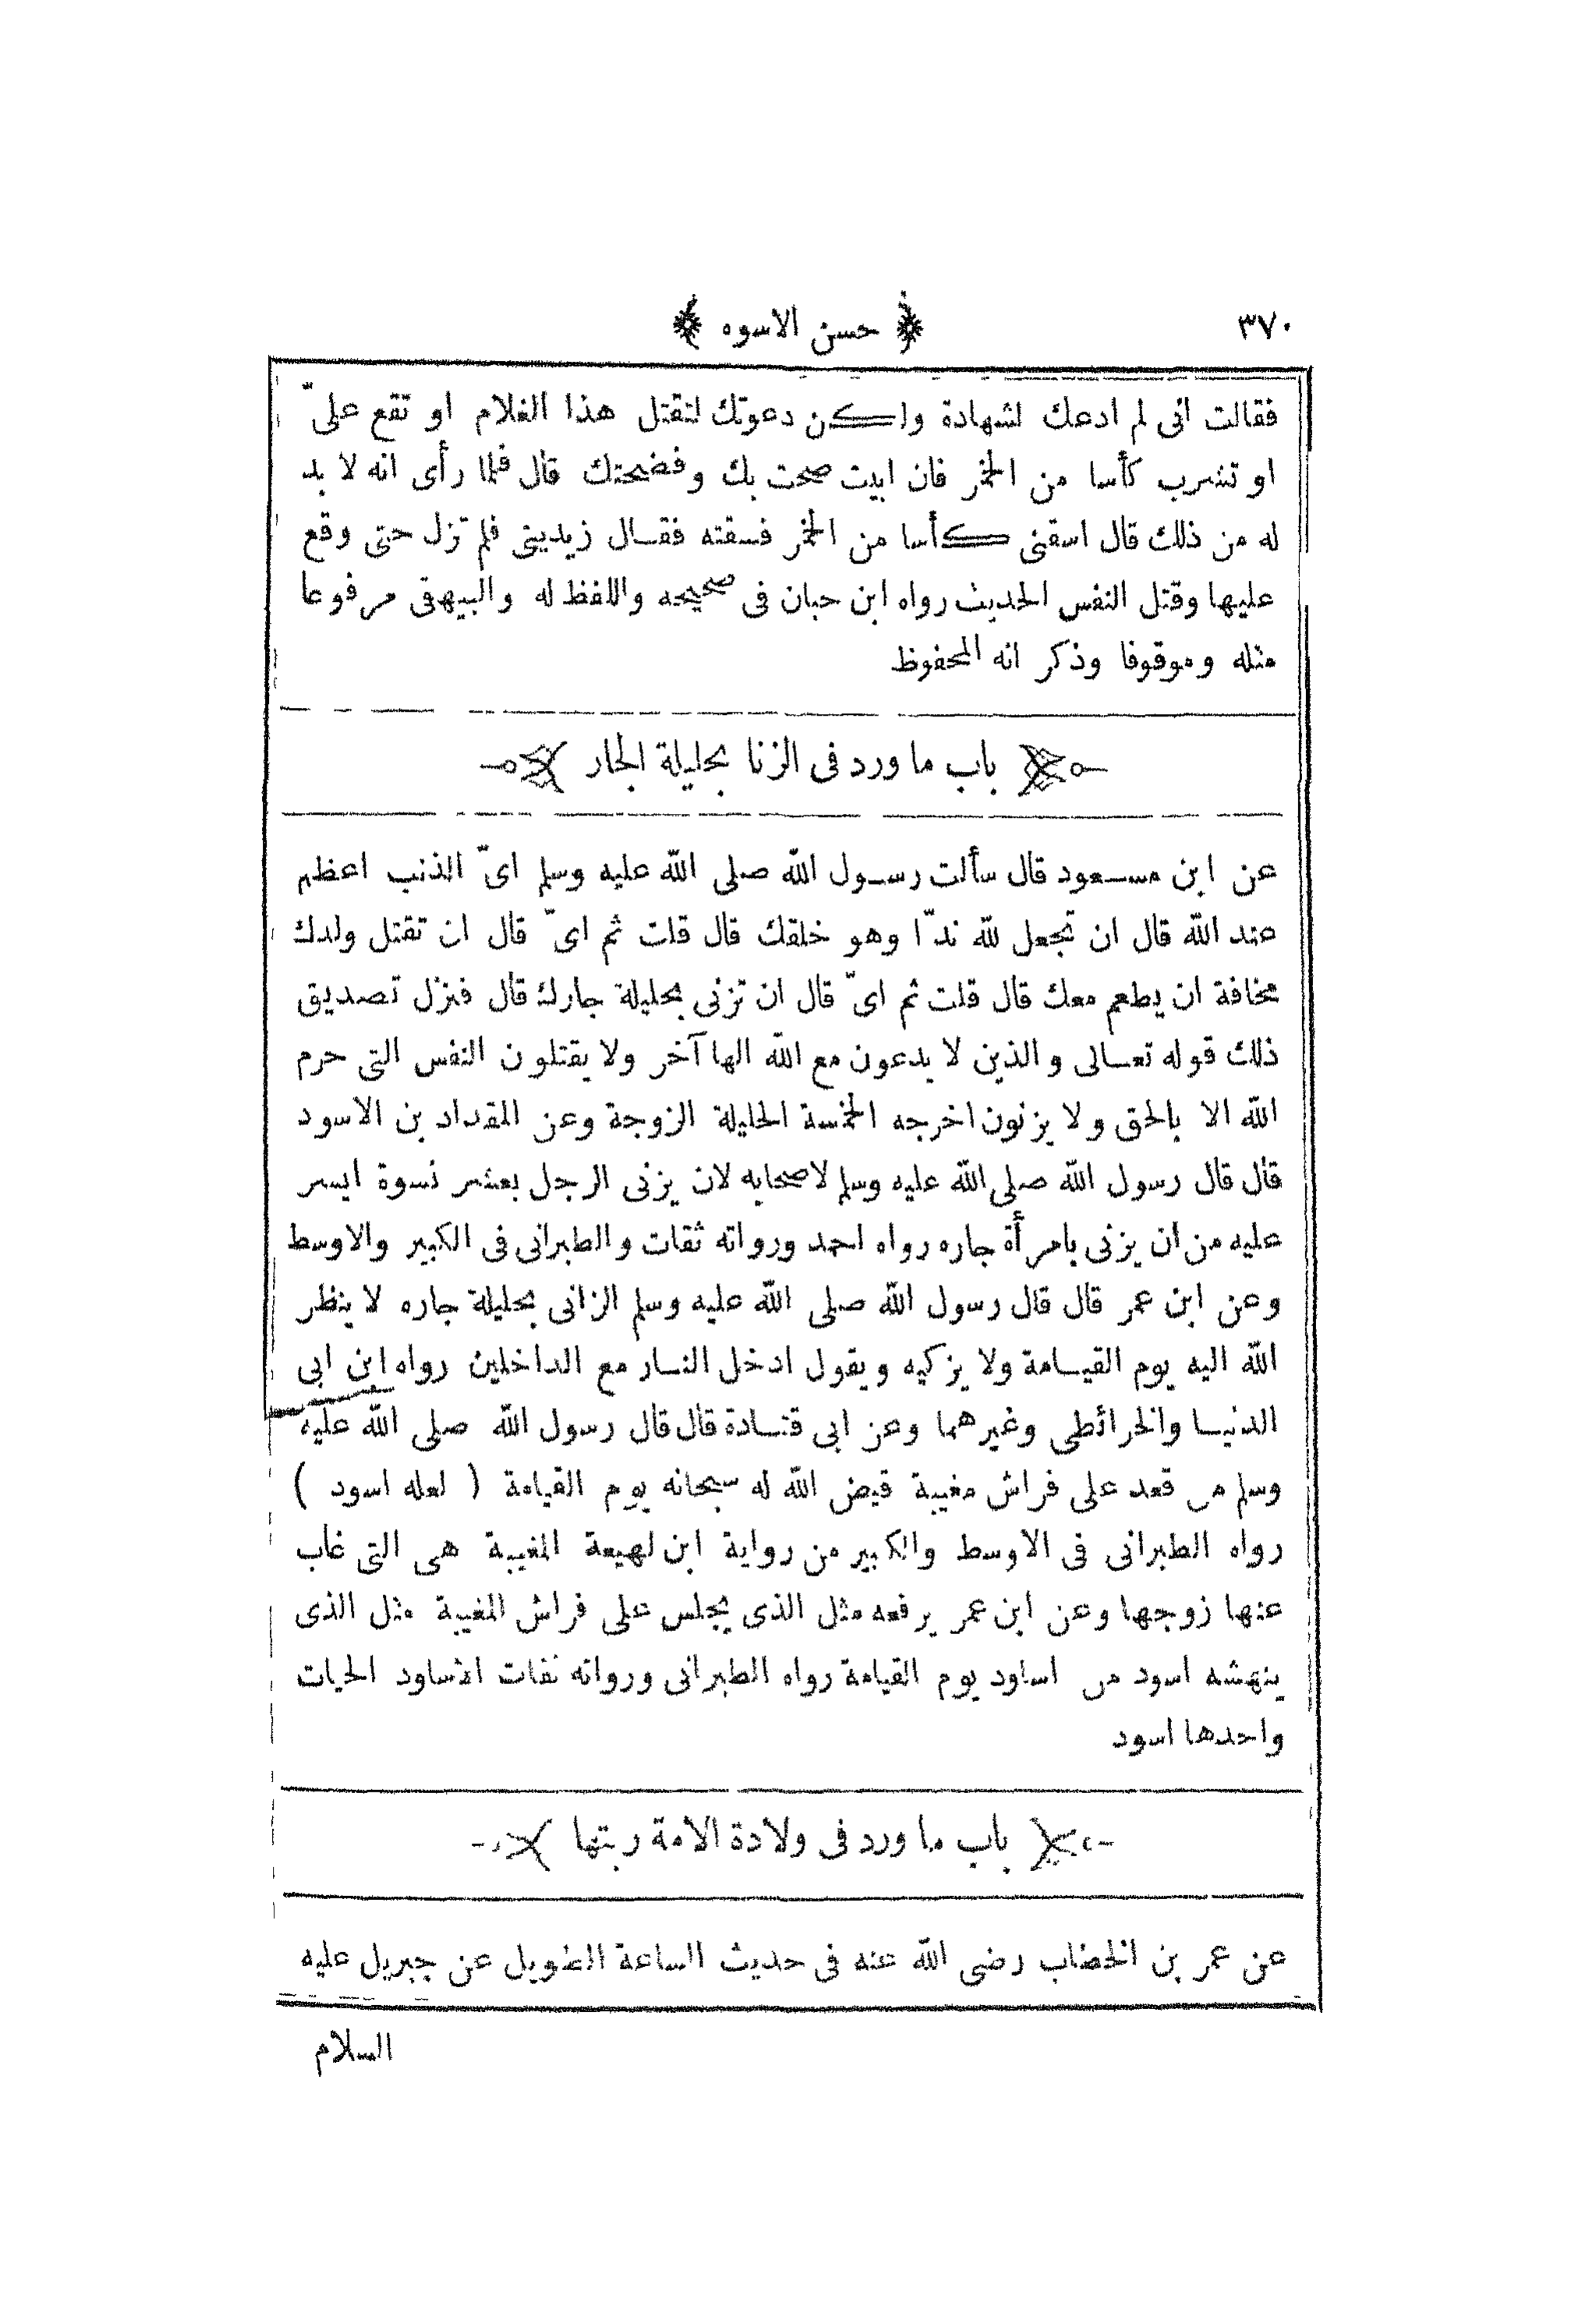 ٣٧٠ ﴿ حسن الاسوه ﴾
فقالت انى لم ادعك لشهادة ولكن دعوتك لتقتل هذا الغلام او تقع علىّ
او تشرب كأسا من الخمر فان ابيت صحت بك وفضحتك قال فلما رأى انه لا بد
له من ذلك قال اسقنى كأسا من الخمر فسقته فقال زيدينى فلم تزل حتى وقع
عليها وقتل النفس الحديث رواه ابن حبان فى صحيحه واللفظ له والبيهقى مرفوعا
مثله وموقوفا وذكر انه المحفوظ
باب ما ورد فى الزنا بحليلة الجار
عن ابن مسعود قال سألت رسول الله صلى الله عليه وسلم اىّ الذنب اعظم
عند الله قال ان تجعل لله ندّا وهو خلقك قال قلت ثم اىّ قال ان تقتل ولدك
مخافة ان يطعم معك قال قلت ثم اىّ قال ان تزنى بحليلة جارك قال فنزل تصديق
ذلك قوله تعالى والذين لا يدعون مع الله الها آخر ولا يقتلون النفس التى حرم
الله الا بالحق ولا يزنون اخرجه الخمسة الحليلة الزوجة وعن المقداد بن الاسود
قال قال رسول الله صلى الله عليه وسلم لاصحابه لان يزنى الرجل بعشر نسوة ايسر
عليه من ان يزنى بامرأة جاره رواه احمد ورواته ثقات والطبرانى فى الكبير والاوسط
وعن ابن عمر قال قال رسول الله صلى الله عليه وسلم الزانى بحليلة جاره لا ينظر
الله اليه يوم القيامة ولا يزكيه ويقول ادخل النار مع الداخلين رواه ابن ابى
الدنيا والخرائطى وغيرهما وعن ابى قتادة قال قال رسول الله صلى الله عليه
وسلم من قعد على فراش مغيبة قيض الله له سبحانه يوم القيامة ( لعله اسود )
رواه الطبرانى فى الاوسط والكبير من رواية ابن لهيعة المغيبة هى التى غاب
عنها زوجها وعن ابن عمر يرفعه مثل الذى يجلس على فراش المغيبة مثل الذى
ينهشه اسود من اساود يوم القيامة رواه الطبرانى ورواته ثقات الاساود الحيات
واحدها اسود
باب ما ورد فى ولادة الامة ربتها
عن عمر بن الخطاب رضى الله عنه فى حديث الساعة الطويل عن جبريل عليه
السلام